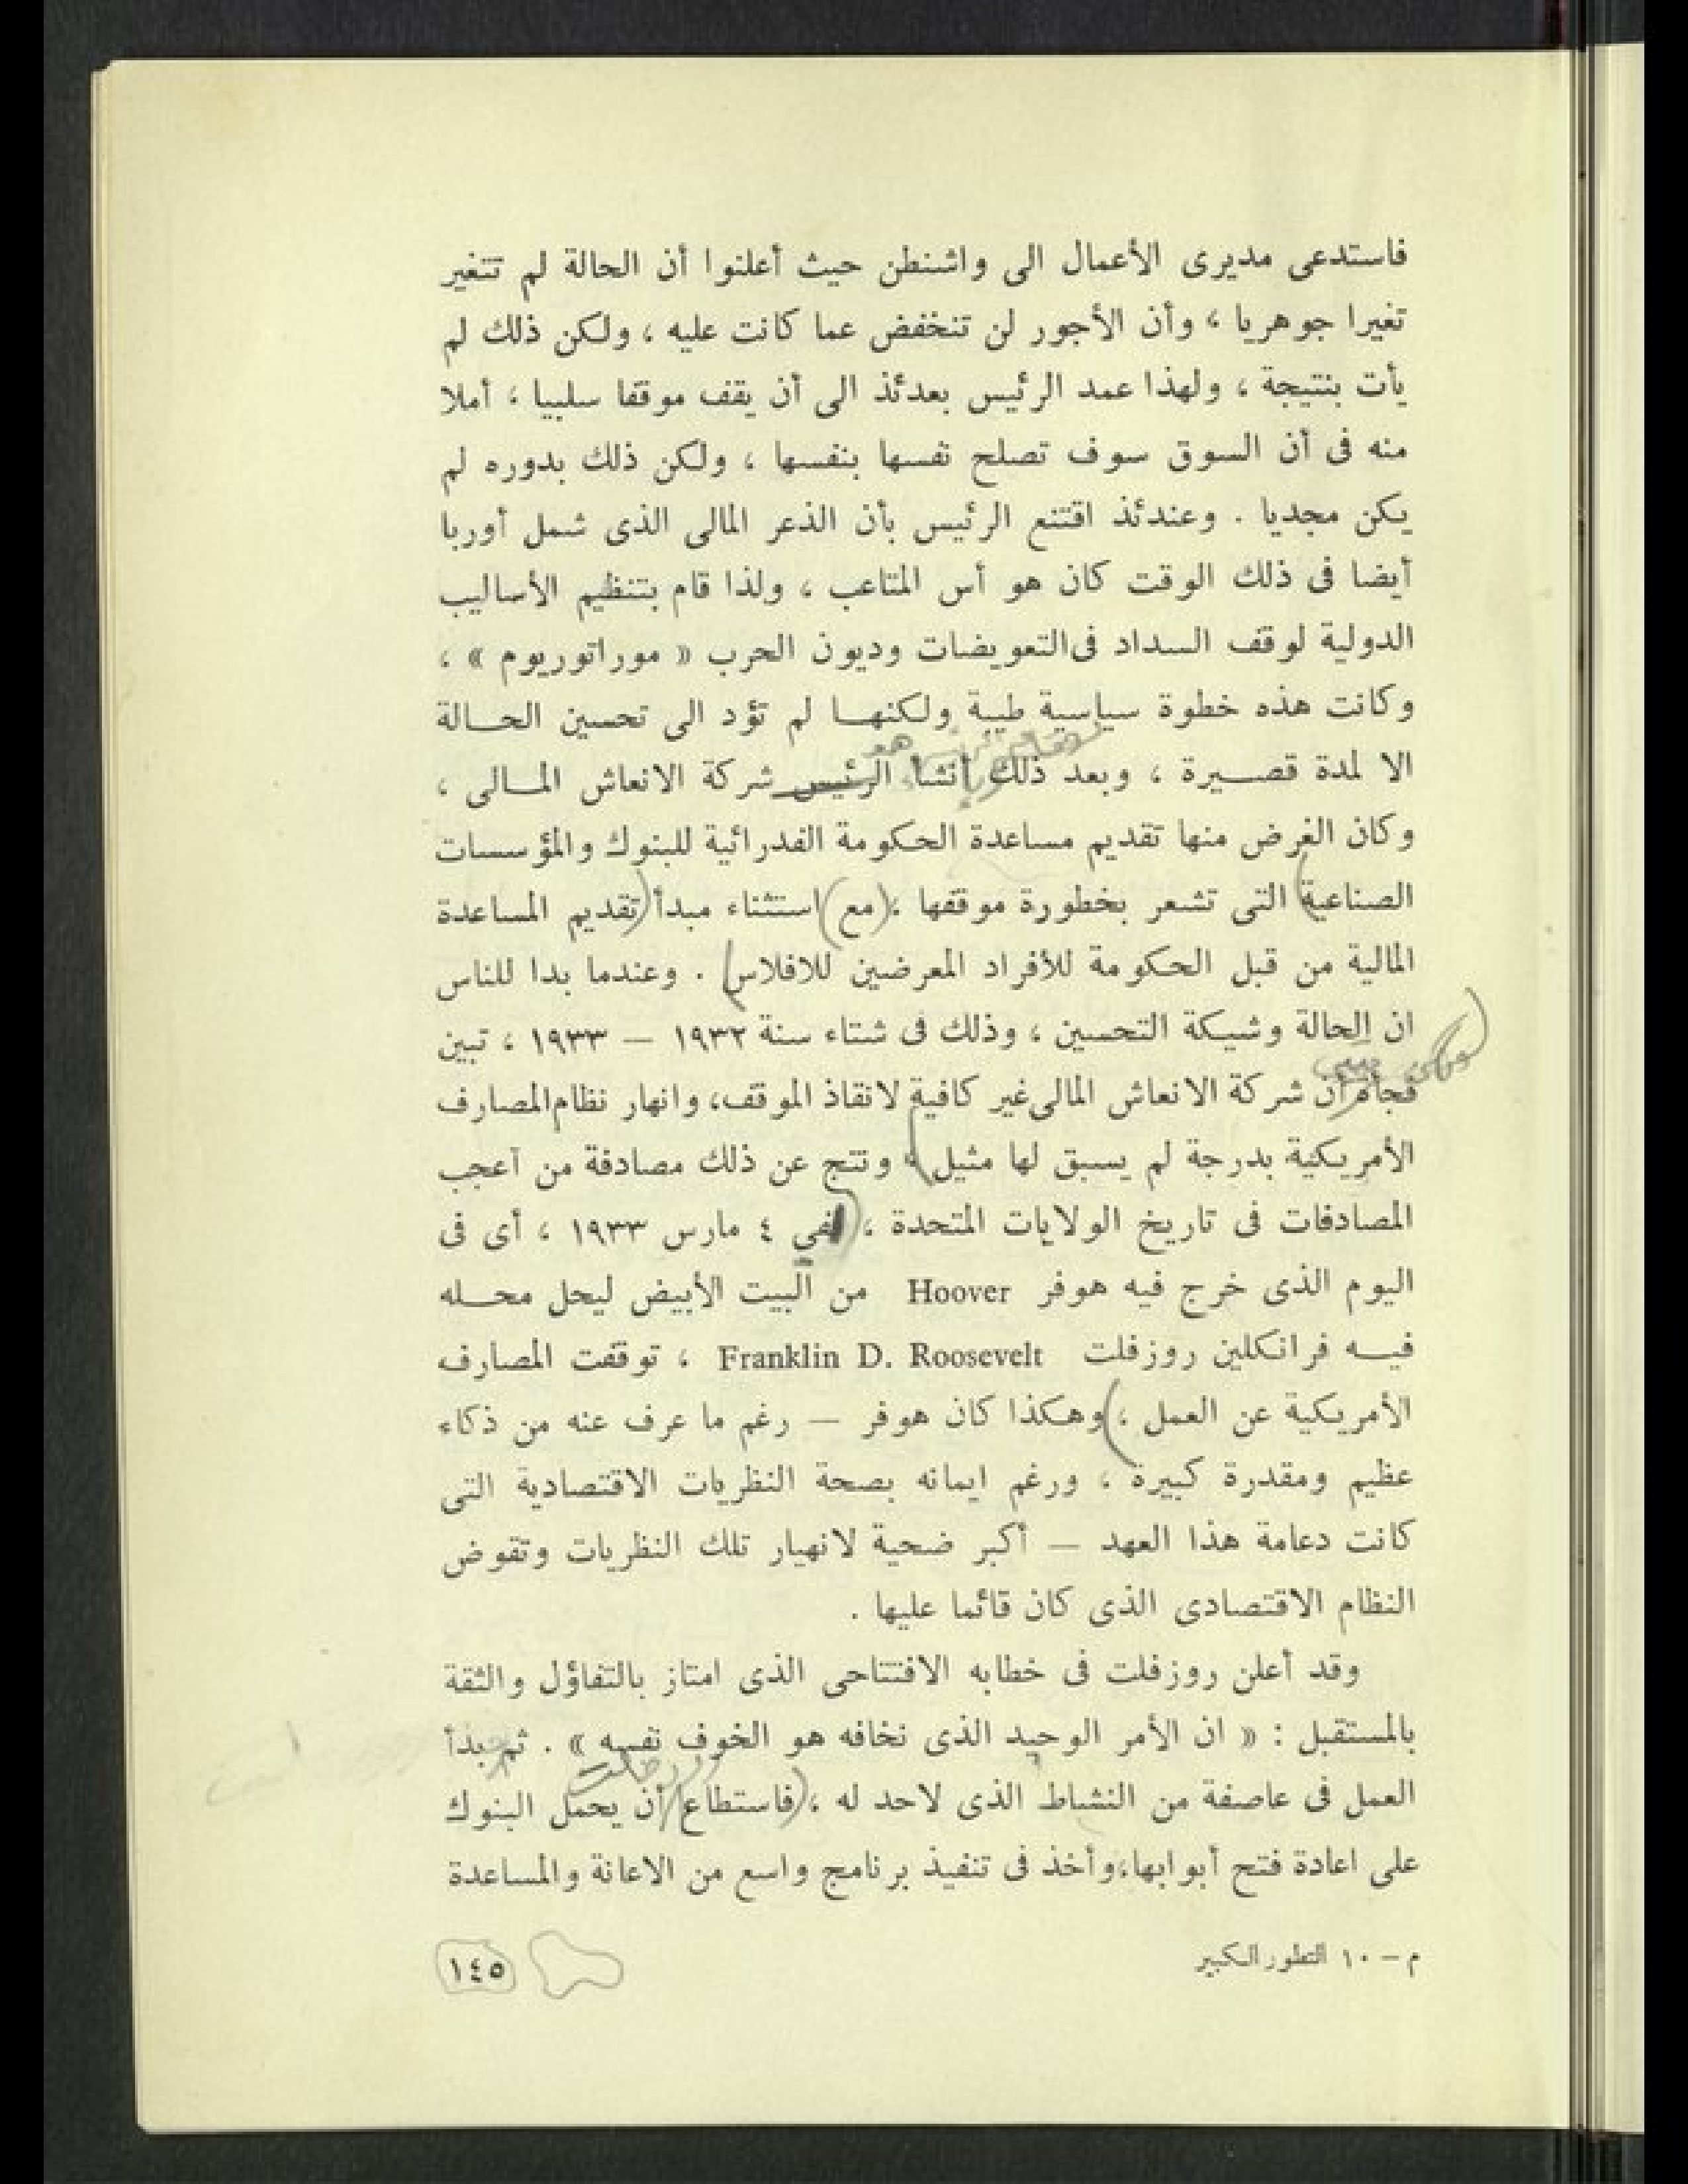 فاستدعى مديرى الأعمال الى واشنطن حيث أعلنوا أن الحالة لم تتغير
تغيرا جوهريا ، وأن الأجور لن تنخفض عما كانت عليه ، ولكن ذلك لم
يأت بنتيجة ، ولهذا عمد الرئيس بعدئذ الى أن يقف موقفا سلبيا ، أملا
منه فى أن السوق سوف تصلح نفسها بنفسها ، ولكن ذلك بدوره لم
يكن مجديا . وعندئذ اقتنع الرئيس بأن الذعر المالى الذى شمل أوربا
أيضا فى ذلك الوقت كان هو أس المتاعب ، ولذا قام بتنظيم الأساليب
الدولية لوقف السداد فى التعويضات وديون الحرب « موراتوريوم » ،
وكانت هذه خطوة سياسية طيبة ولكنهـا لم تؤد الى تحسين الحـالة
هو
الا لمدة قصـيرة ، وبعد ذلك أنشأ الرئيس شركة الانعاش المـالى ،
وكان الغرض منها تقديم مساعدة الحكومة الفدرائية للبنوك والمؤسسات
الصناعية) التى تشعر بخطورة موقفها ،(مع) استثناء مبدأ (تقديم المساعدة
المالية من قبل الحكومة للأفراد المعرضين للافلاس) . وعندما بدا للناس
ان الحالة وشيكة التحسين ، وذلك فى شتاء سنة ١٩٣٢ – ١٩٣٣ ، تبين
فجأة أن شركة الانعاش المالى غير كافية لانقاذ الموقف، وانهار نظام المصارف
الأمريكية بدرجة لم يسبق لها مثيل) ، ونتج عن ذلك مصادفة من أعجب
المصادفات فى تاريخ الولايات المتحدة ، (ففي ٤ مارس ١٩٣٣ ، أى فى
اليوم الذى خرج فيه هوفر Hoover من البيت الأبيض ليحل محـله
فيـه فرانكلين روزفلت Franklin D. Roosevelt ، توقفت المصارف
الأمريكية عن العمل ،) وهكذا كان هوفر – رغم ما عرف عنه من ذكاء
عظيم ومقدرة كبيرة ، ورغم ايمانه بصحة النظريات الاقتصادية التى
كانت دعامة هذا العهد – أكبر ضحية لانهيار تلك النظريات وتقوض
النظام الاقتصادى الذى كان قائما عليها .
وقد أعلن روزفلت فى خطابه الافتتاحى الذى امتاز بالتفاؤل والثقة
بالمستقبل : « ان الأمر الوحيد الذى نخافه هو الخوف نفسه » . ثم بدأ
روزفلت
العمل فى عاصفة من النشاط الذى لاحد له ، (فاستطاع) أن يحمل البنوك
على اعادة فتح أبوابها، وأخذ فى تنفيذ برنامج واسع من الاعانة والمساعدة
م – ١٠ التطور الكبير
١٤٥